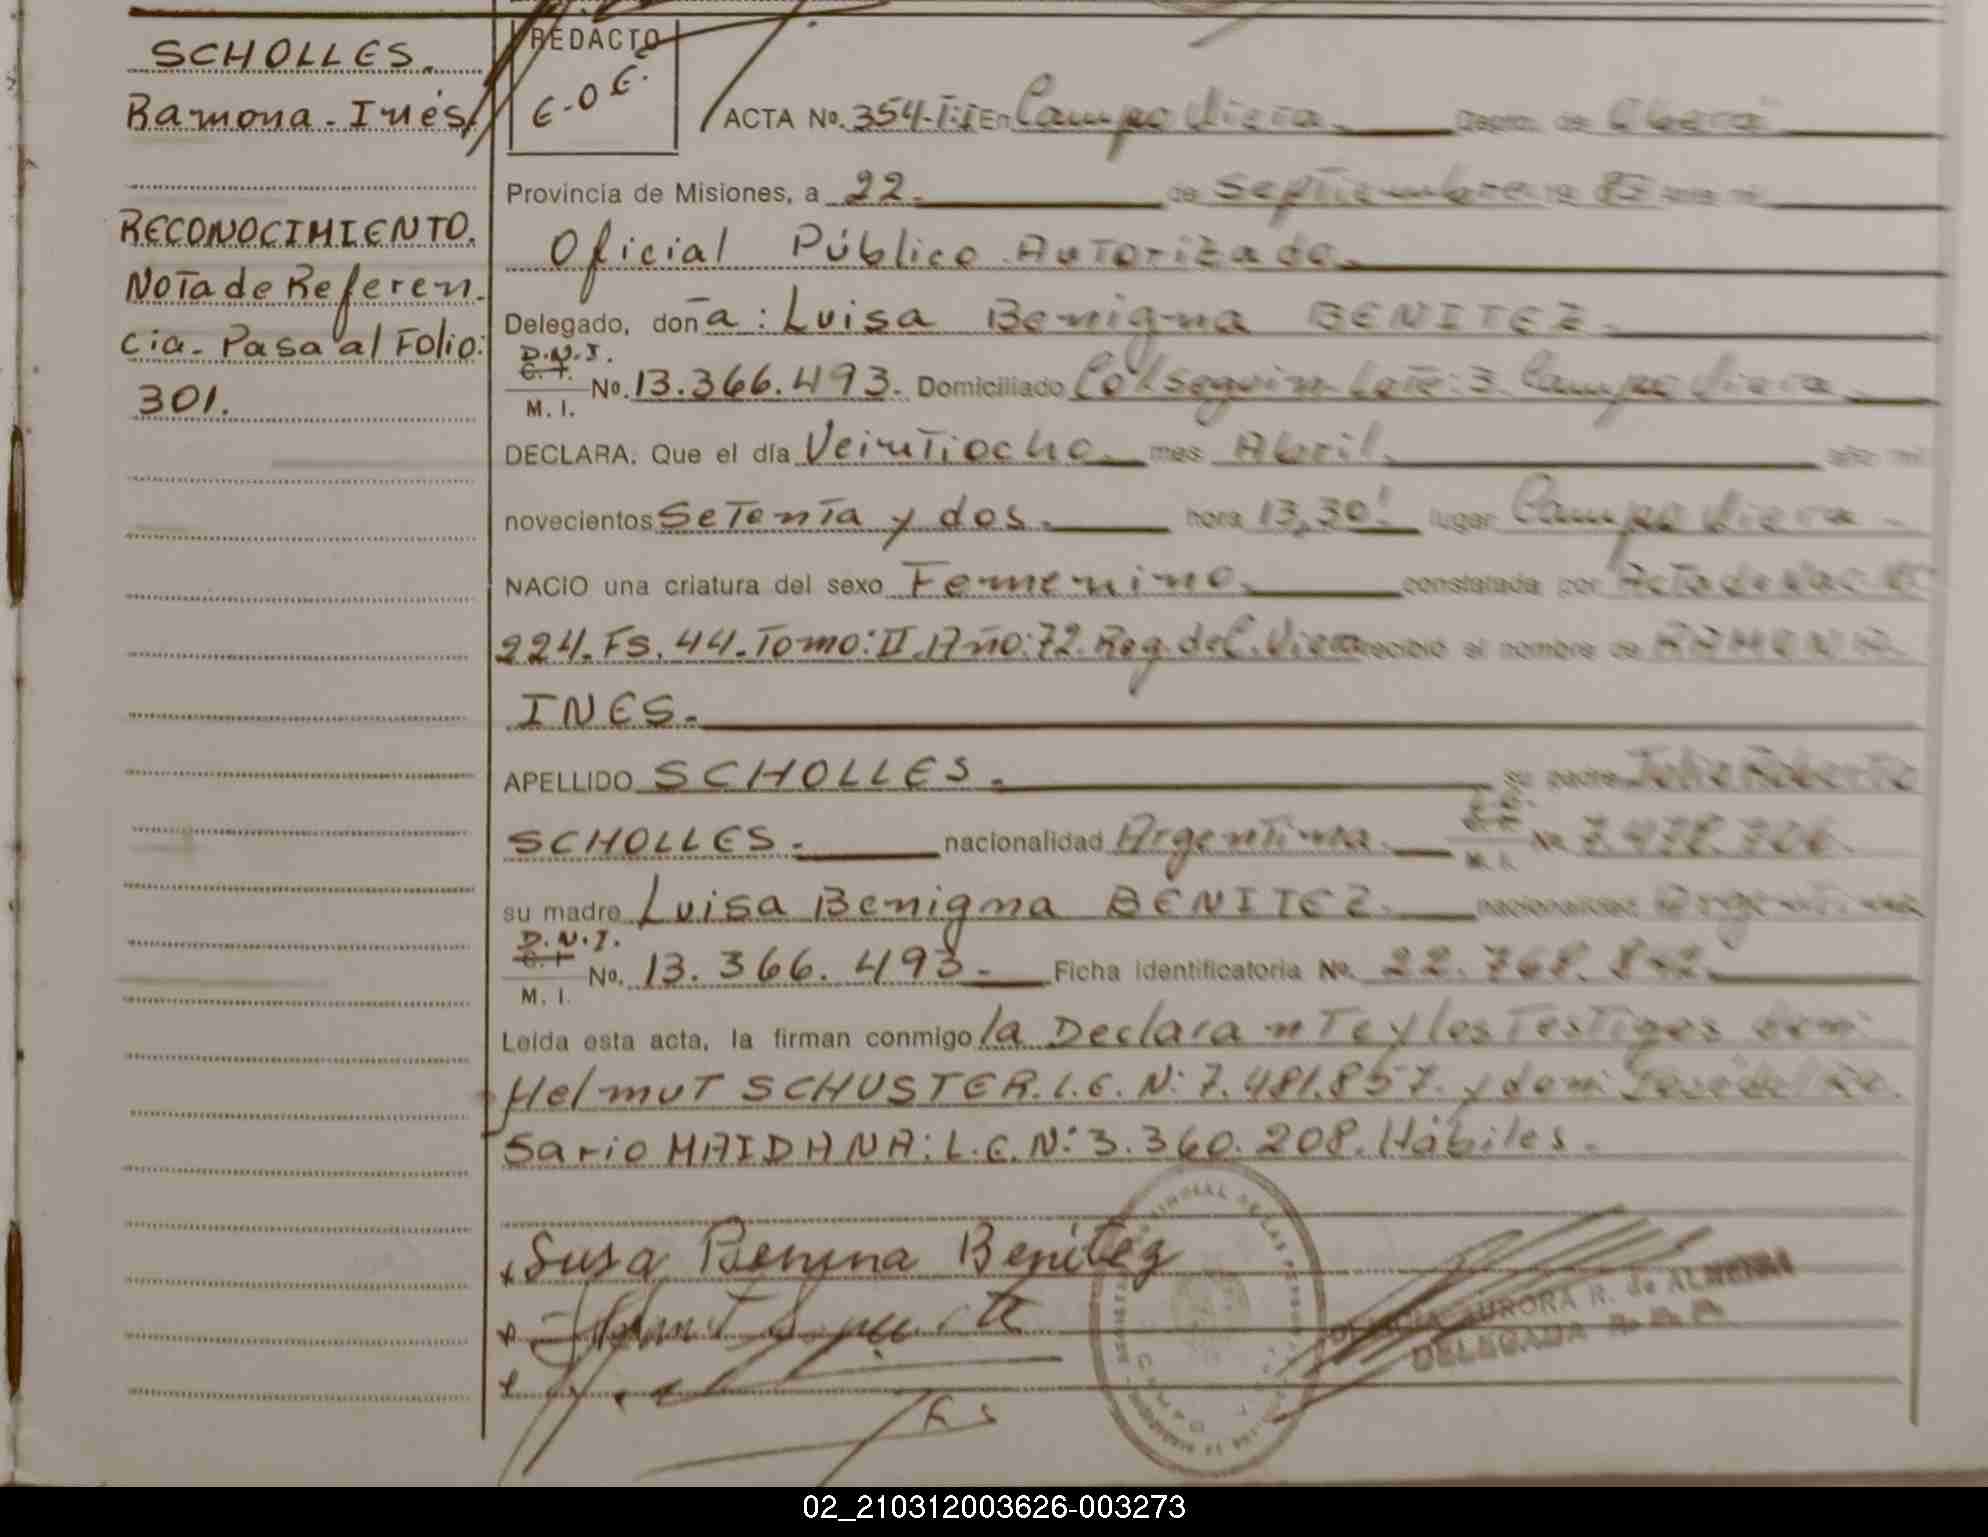 SCHOLLES.
Ramona - Inés
RECONOCIMIENTO.
Nota de Referen
cia. Pasa al Folio:
301.
REDACTO
E.O.E.
ACTA No. 354-T:I En Campo Viera. Depto. de Oberá
Provincia de Misiones, a 22. de Septiembre 19 83 ante mi
Oficial Público Autorizado.
Delegado, don a: Luisa Benigna BENITEZ.
D.N.I.
C. I.
M. I.
No. 13.366.493. Domiciliado Col. Seguin Lote: 3. Campo Viera.
DECLARA: Que el día Veintiocho. mes Abril. año mil
novecientos Setenta y dos. hora 13,30' lugar Campo Viera.
NACIO una criatura del sexo Femenino. constatada por Acta de Nac. Nº
224. Fs. 44. Tomo: II. Año: 72. Reg. del C. Viera recibió el nombre de RAMONA
INES.
APELLIDO SCHOLLES. su padre Julio Roberto
SCHOLLES. nacionalidad Argentina. M. I. No 7.478.706.
su madre Luisa Benigna BENITEZ. nacionalidad Argentina
D.N.I.
C. I.
M. I.
No. 13.366.493. Ficha identificatoria No. 22.768.842.
Leída esta acta, la firman conmigo la Declarante y los Testigos don:
Helmut SCHUSTER. L.E. N: 7.481.857. y don: José del Ro
sario MAIDANA: L.E. N: 3.360.208. Hábiles.
Susa Benina Benítez
AURORA R. de ALMEIDA
DELEGADA
02_210312003626-003273